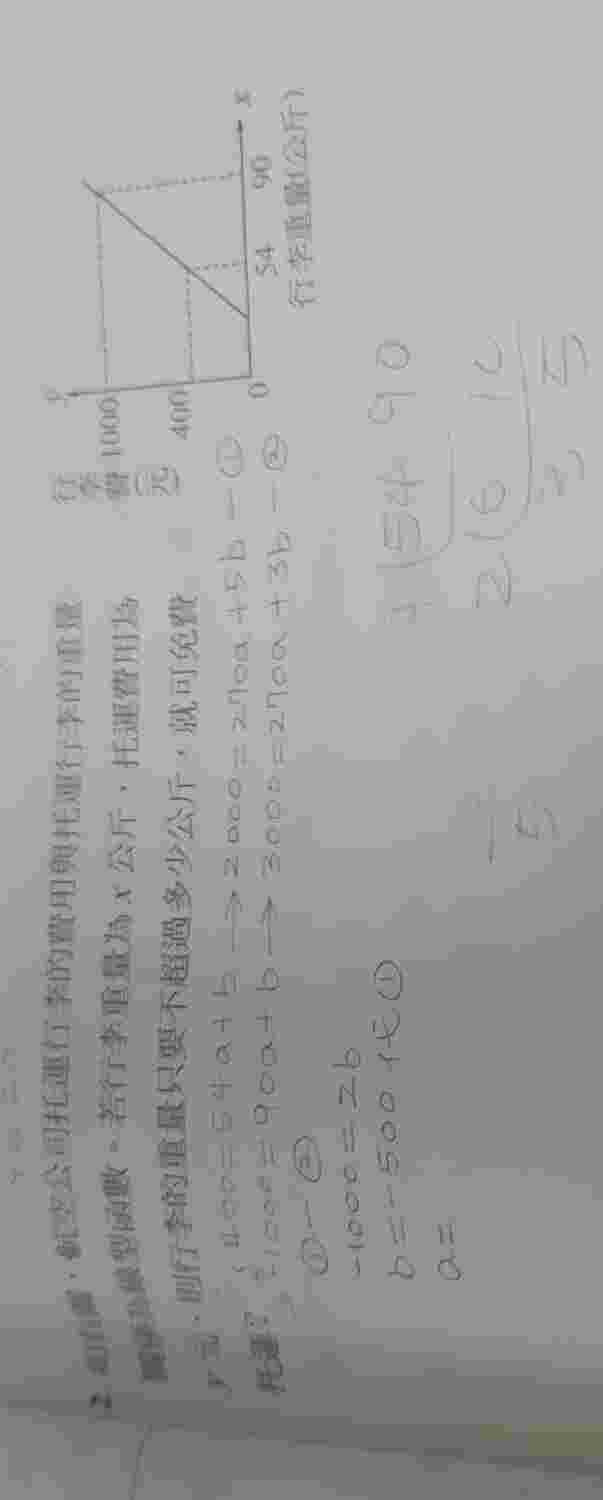 2. 如右圖，航空公司托運行李的費用與托運行李的重量
關係為線型函數。若行李重量為 x 公斤，托運費用為
y 元，則行李的重量只要不超過多少公斤，就可免費
托運？
行李費(元)
1000
400
0
54
90
x
y
行李重量(公斤)
400=54a+b → 2000=270a+5b — ①
1000=90a+b → 3000=270a+3b — ②
①-②
-1000=2b
b=-500代①
a=
54 90
2
6 10
3 5
5